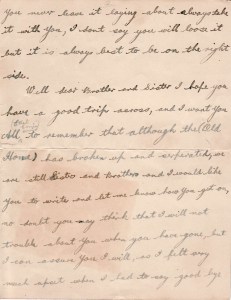 you never leave it laying about always take
it with you, I dont say you will loose it
but it is always best to be on the right
side.
Well dear Brother and Sister I hope you
have a good trip across, and I want you
All to try remember that although the (Old
Home) has broken up and seperated, we
are still Sisters and Brothers and I would like
you to write and let me know how you get on,
no doubt you may think that I will not
trouble about you when you have gone, but
I can assure you I will, as I felt very
much upset when I had to say good bye